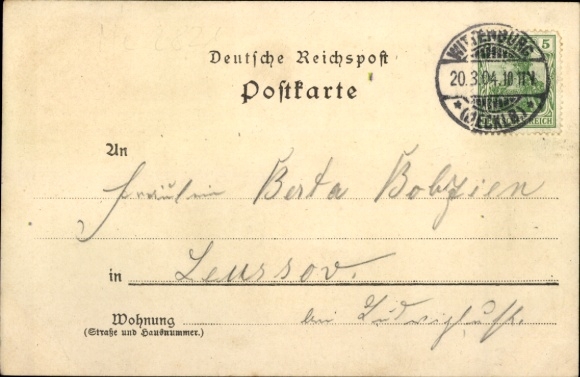 Deutsche Reichspost
Postkarte
5
WITTENBURG
20.3.04.10-11V.
* (MECKLB) *
REICH
An
Fräulein Berta Bobzien
in Leussow.
Wohnung bei Ludwigslust.
(Straße und Hausnummer.)